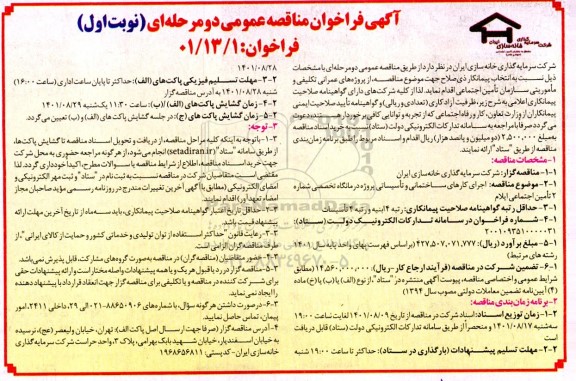 آگهی فراخوان مناقصه عمومی دو مرحله‌ای (نوبت اول)
فراخوان: ۰۱/۱۳/۱
شرکت سرمایه گذاری
خانه سازی ایران
شرکت سرمایه گذاری خانه سازی ایران در نظر دارد از طریق مناقصه عمومی دو مرحله‌ای با مشخصات
ذیل نسبت به انتخاب پیمانکار ذی صلاح جهت موضوع مناقصه، از پروژه‌های عمرانی تکلیفی و
مأموریتی سازمان تأمین اجتماعی اقدام نماید. لذا از کلیه شرکت‌های دارای گواهینامه صلاحیت
پیمانکاری اعلامی به شرح زیر، ظرفیت آزاد کاری (تعدادی و ریالی) و گواهینامه تأیید صلاحیت ایمنی
پیمانکاران از وزارت تعاون، کار و رفاه اجتماعی که از تجربه و توانایی کافی برخوردار هستند، دعوت
می‌گردد صرفا با مراجعه به سامانه تدارکات الکترونیکی دولت (ستاد) نسبت به دریافت اسناد مناقصه
به مبلغ ۲,۵۰۰,۰۰۰ (دو میلیون و پانصد هزار) ریال و اقدام و اسناد مربوط را طبق برنامه زمان‌بندی
مناقصه از طریق "ستاد" ارائه نمایند.
۱- مشخصات مناقصه:
۱-۱- مناقصه گزار: شرکت سرمایه گذاری خانه سازی ایران
۱-۲- موضوع مناقصه: اجرای کارهای ساختمانی و تأسیساتی پروژه درمانگاه تخصصی شماره
۲ تأمین اجتماعی ایلام
۱-۳- حداقل رتبه گواهینامه صلاحیت پیمانکاری: رتبه ۴ ابنیه و رتبه ۴ تأسیسات
۱-۴- شماره فراخوان در سامانه تدارکات الکترونیک دولت (ستاد):
۲۰۰۱۰۹۳۵۱۰۰۰۰۰۳۱
۱-۵- مبلغ برآورد (ریال): ۴۲۷,۵۰۷,۰۷۱,۷۷۷ (براساس فهرست بهای واحد پایه سال ۱۴۰۱
رشته های مرتبط)
۱-۶- تضمین شرکت در مناقصه (فرآیند ارجاع کار- ریال): ۱۴,۵۶۰,۰۰۰,۰۰۰ (مطابق
شرایط عمومی و اختصاصی مناقصه، پیوست آگهی منتشره در "ستاد"، از نوع (الف) یا (ب) یا (ج) ماده
(۴) آیین‌نامه تضمین معاملات دولتی مصوب سال ۱۳۹۴)
۲- برنامه زمان‌بندی مناقصه:
۲-۱- زمان توزیع اسناد: اسناد شرکت در مناقصه از تاریخ ۱۴۰۱/۰۸/۰۹ لغایت ساعت ۱۹:۰۰
سه‌شنبه ۱۴۰۱/۰۸/۱۷ و منحصراً از طریق سامانه تدارکات الکترونیکی دولت (ستاد) قابل دریافت
است
۲-۲- مهلت تسلیم پیشنهادات (بارگذاری در ستاد): حداکثر تا ساعت ۱۹:۰۰ شنبه
۱۴۰۱/۰۸/۲۸
۲-۳- مهلت تسلیم فیزیکی پاکت‌های (الف): حداکثر تا پایان ساعت اداری (ساعت ۱۶:۰۰)
شنبه ۱۴۰۱/۰۸/۲۸ به آدرس مناقصه گزار
۲-۴- زمان گشایش پاکت‌های (الف)/(ب): ساعت ۱۱:۳۰ یک‌شنبه ۱۴۰۱/۰۸/۲۹
۲-۵- زمان گشایش پاکت های (ج): در جلسه گشایش پاکت های (الف) و (ب) تعیین می‌گردد.
۳- توجه:
۳-۱- با توجه به اینکه کلیه مراحل مناقصه، از دریافت و تحویل اسناد مناقصه تا گشایش پاکت‌ها،
از طریق سامانه "ستاد" (setadiran.ir) انجام می‌شود، از هر گونه مراجعه حضوری به محل شرکت
جهت خرید اسناد مناقصه، اطلاع از شرایط مناقصه یا سؤالات مطرح، اکیدا خودداری گردد. لذا
مقتضی است متقاضیان شرکت در مناقصه نسبت به ثبت‌نام در "ستاد" و ثبت مهر الکترونیکی و
امضای الکترونیکی (مطابق با آگهی آخرین تغییرات مندرج در روزنامه رسمی مؤید صاحبان مجاز
امضاء تعهدآور) اقدام نمایند.
۳-۲- حداقل تاریخ اعتبار گواهینامه صلاحیت پیمانکاری، باید سه ماه از تاریخ آخرین مهلت ارائه
پیشنهاد قیمت باشد.
۳-۳- رعایت قانون "حداکثر استفاده از توان تولیدی و خدماتی کشور و حمایت از کالای ایرانی"، از
طرف مناقصه‌گران الزامی است.
۳-۴- حضور متقاضیان (مناقصه گران) در مناقصه به صورت گروه های مشارکت، قابل پذیرش نمی‌باشد.
۳-۵- مناقصه گزار در رد یا قبول هر یک و یا همه پیشنهادات واصله مختار است و ارائه پیشنهادات حقی
برای شرکت کننده در مناقصه و یا تکلیفی برای مناقصه گزار جهت انعقاد قرارداد با پیشنهاد دهنده
را ایجاد نمی نماید.
۳-۶- درصورت داشتن هرگونه سؤال، با شماره‌های ۸۸۶۵۰۹۰۶-۰۲۱ الی ۲۹، داخلی ۲۴۱۱، امور
پیمان، تماس حاصل نمایید.
۴- آدرس مناقصه گزار (صرفا جهت ارسال اصل پاکت الف): تهران، خیابان ولیعصر (عج)، نرسیده
به خیابان اسفندیار، خیابان شهید بابک بهرامی، پلاک ۳، واحد حراست شرکت سرمایه گذاری
خانه سازی ایران - کدپستی: ۱۹۶۸۶۵۶۸۱۱